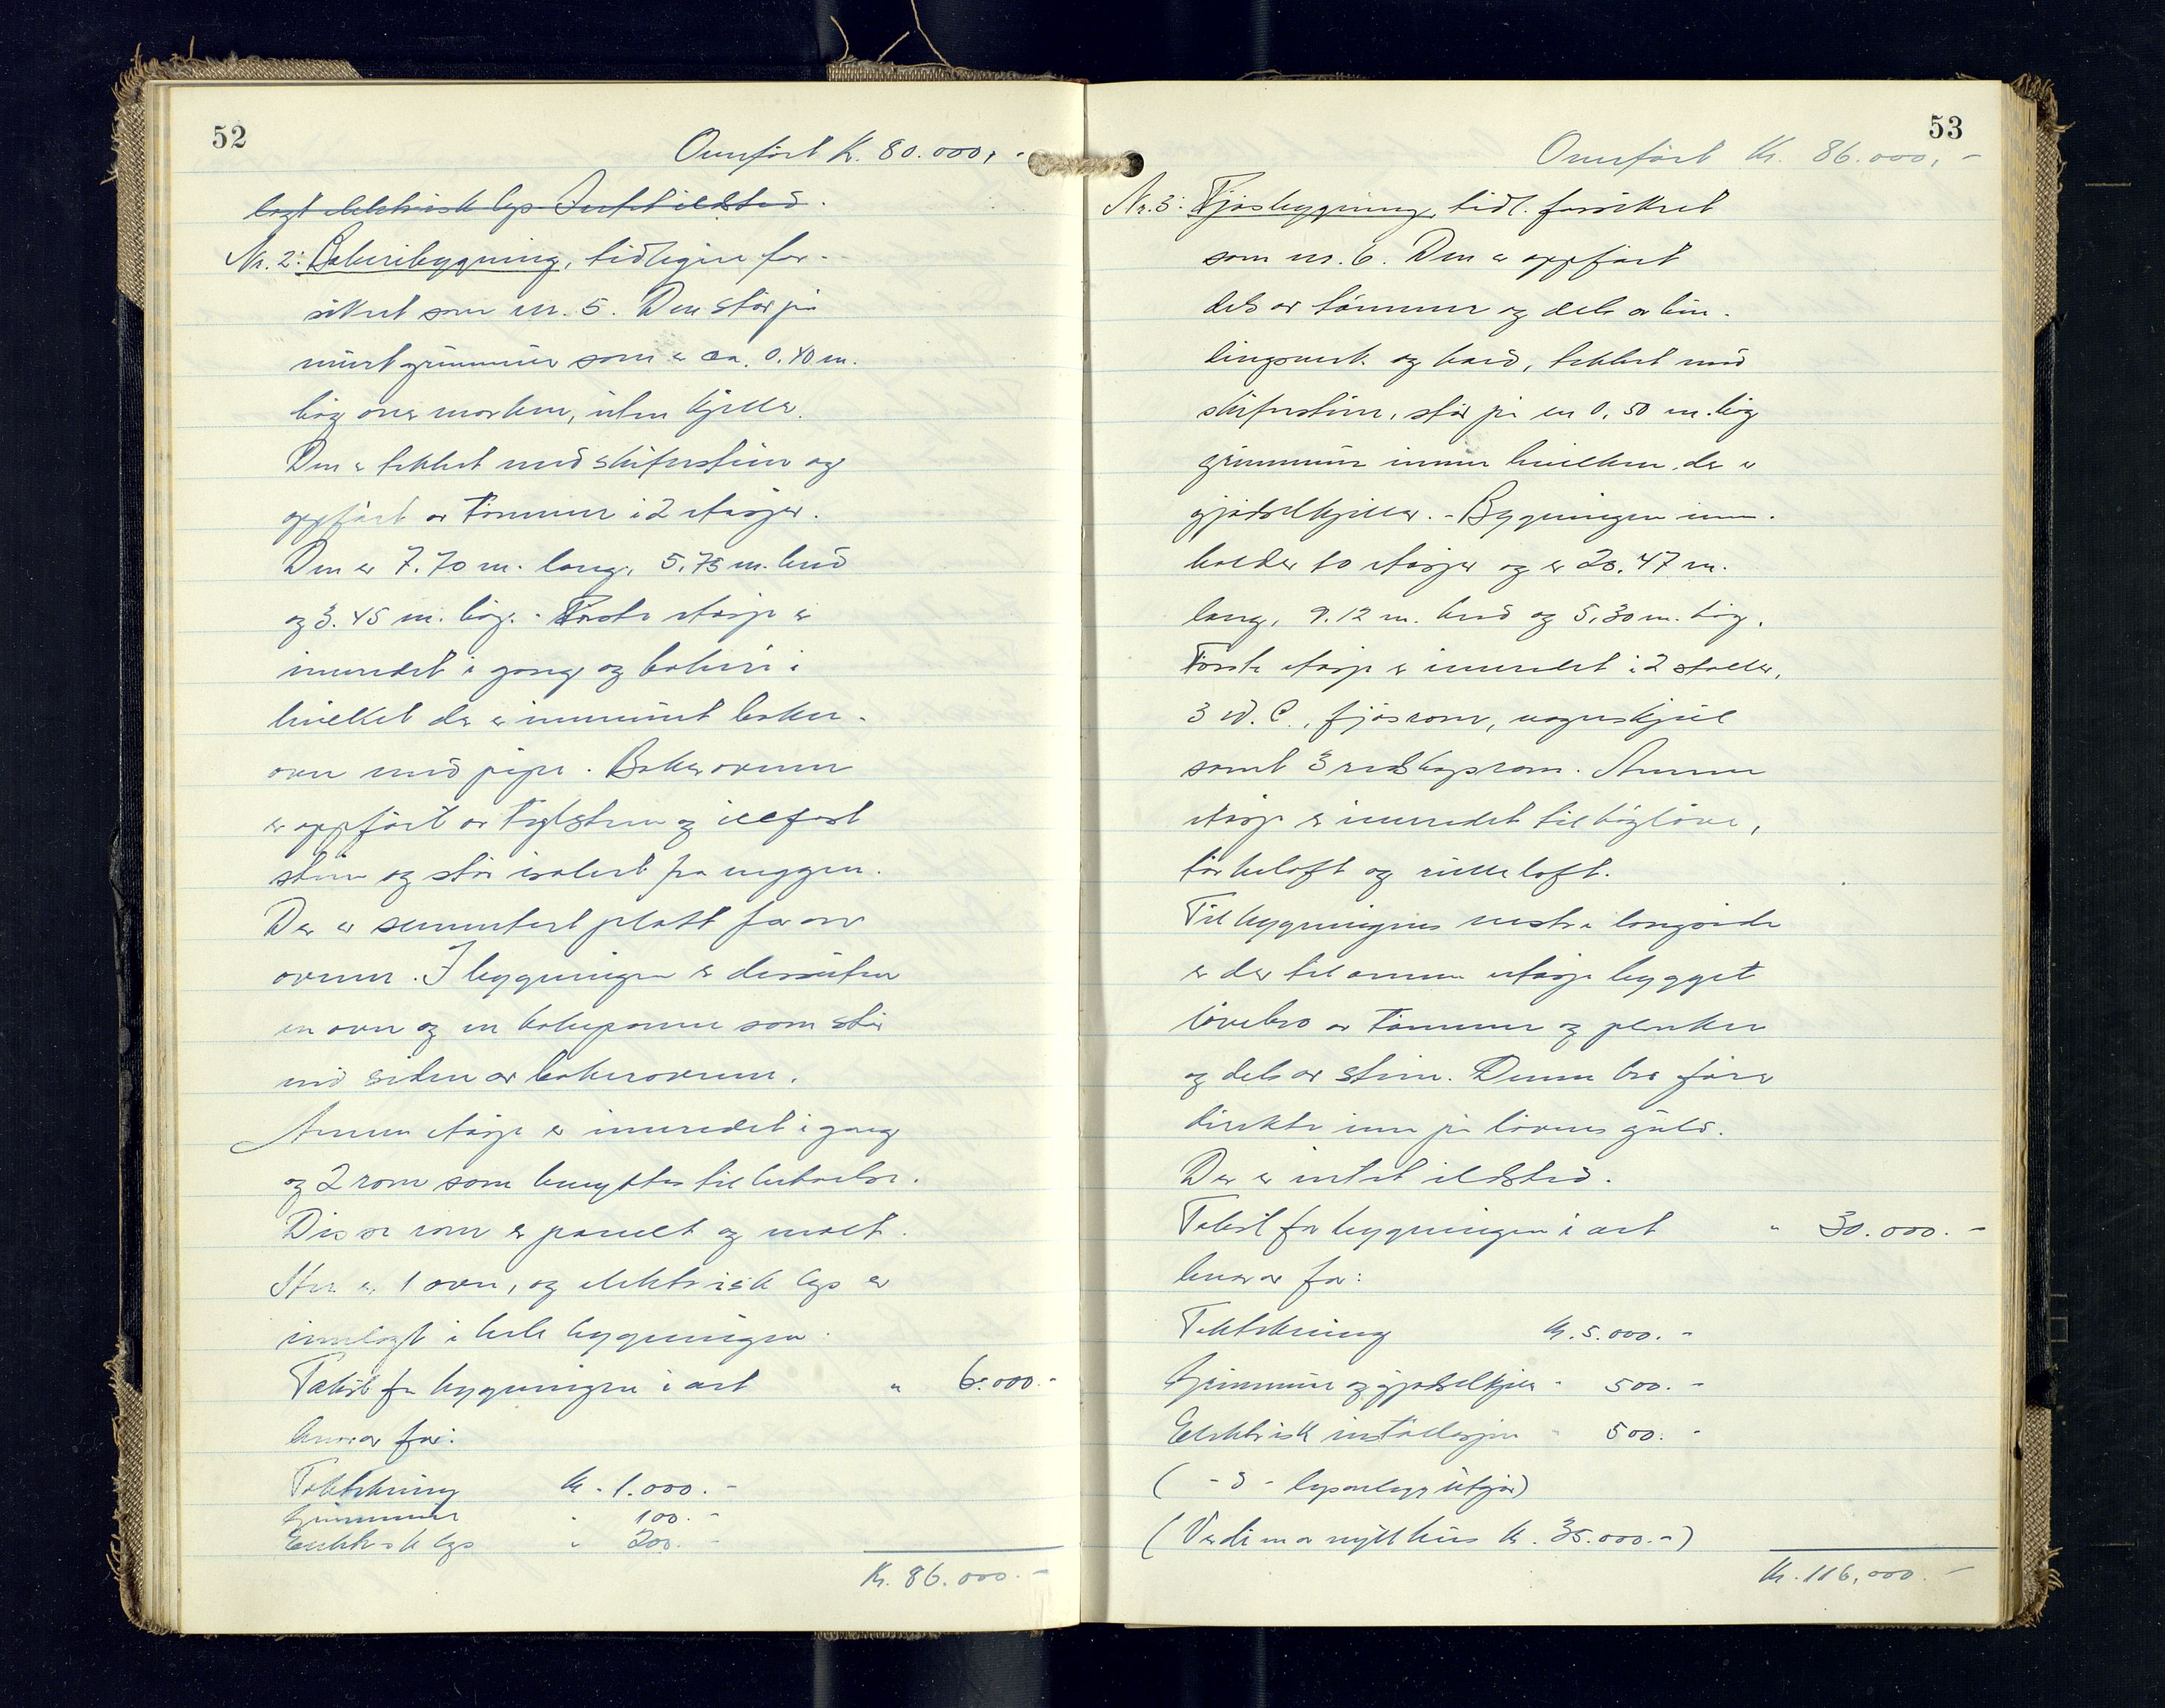 52
Overført Kr. 80.000,-
lagt elektrisk lys. Intet ildsted.
Nr. 2: Bakeribygning, tidligere for-
sikret som nr. 5. Den står på
murt grunnmur som er ca. 0.40 m.
høg over marken, uten kjeller.
Den er tekket med skiferstein og
oppført av tømmer i 2 etasjer.
Den er 7.70 m. lang, 5.75 m. bred
og 3.45 m. høg. - Første etasje er
innredet i gang og bakeri i
hvilket der er innmurt baker-
ovn med pipe. Bakerovnen
er oppført av teglsten og ildfast
sten og står isolert fra veggen.
Der er sementert platt foran
ovnen. I bygningen er dessuten
en ovn og en kokepanne som står
ved siden av bakerovnen.
Annen etasje er innredet i gang
og 2 rom som benyttes til beboelse.
Disse rom er panelt og malt.
Her er 1 ovn, og elektrisk lys er
innlagt i hele bygningen.
Takst for bygningen i alt " 6.000.-
hvorav for:
Taktekning Kr. 1.000.-
Grunnmur " 100.-
Elektrisk lys " 200.-
Kr. 86.000.-
53
Overført Kr. 86.000,-
Nr. 3: Fjøsbygning, tidl. forsikret
som nr. 6. Den er oppført
dels av tømmer og dels av bin-
dingsverk og bord, tekket med
skiferstein, står på en 0,50 m. høg
grunnmur innen hvilken der er
gjødselkjeller. - Bygningen inne-
holder to etasjer og er 20.47 m.
lang, 9.12 m. bred og 5,30 m. høg.
Første etasje er innredet i 2 staller,
3 W.C., fjøsrom, vognskjul
samt 3 redskapsrom. Annen
etasje er innredet til høyløve,
tørkeloft og rulleloft.
Til bygningens vestre langside
er der til annen etasje bygget
løvebro av tømmer og planker
og dels av stein. Denne bro fører
direkte inn på løvens gulv.
Der er intet ildsted.
Takst for bygningen i alt " 30.000.-
hvorav for:
Taktekning Kr. 5.000.-
Grunnmur og gjødselkjeller " 500.-
Elektrisk installasjon " 500.-
( - 3 - lysanlegg utgjør)
(Verdi av nytt hus kr. 35.000.-)
Kr. 116,000.-